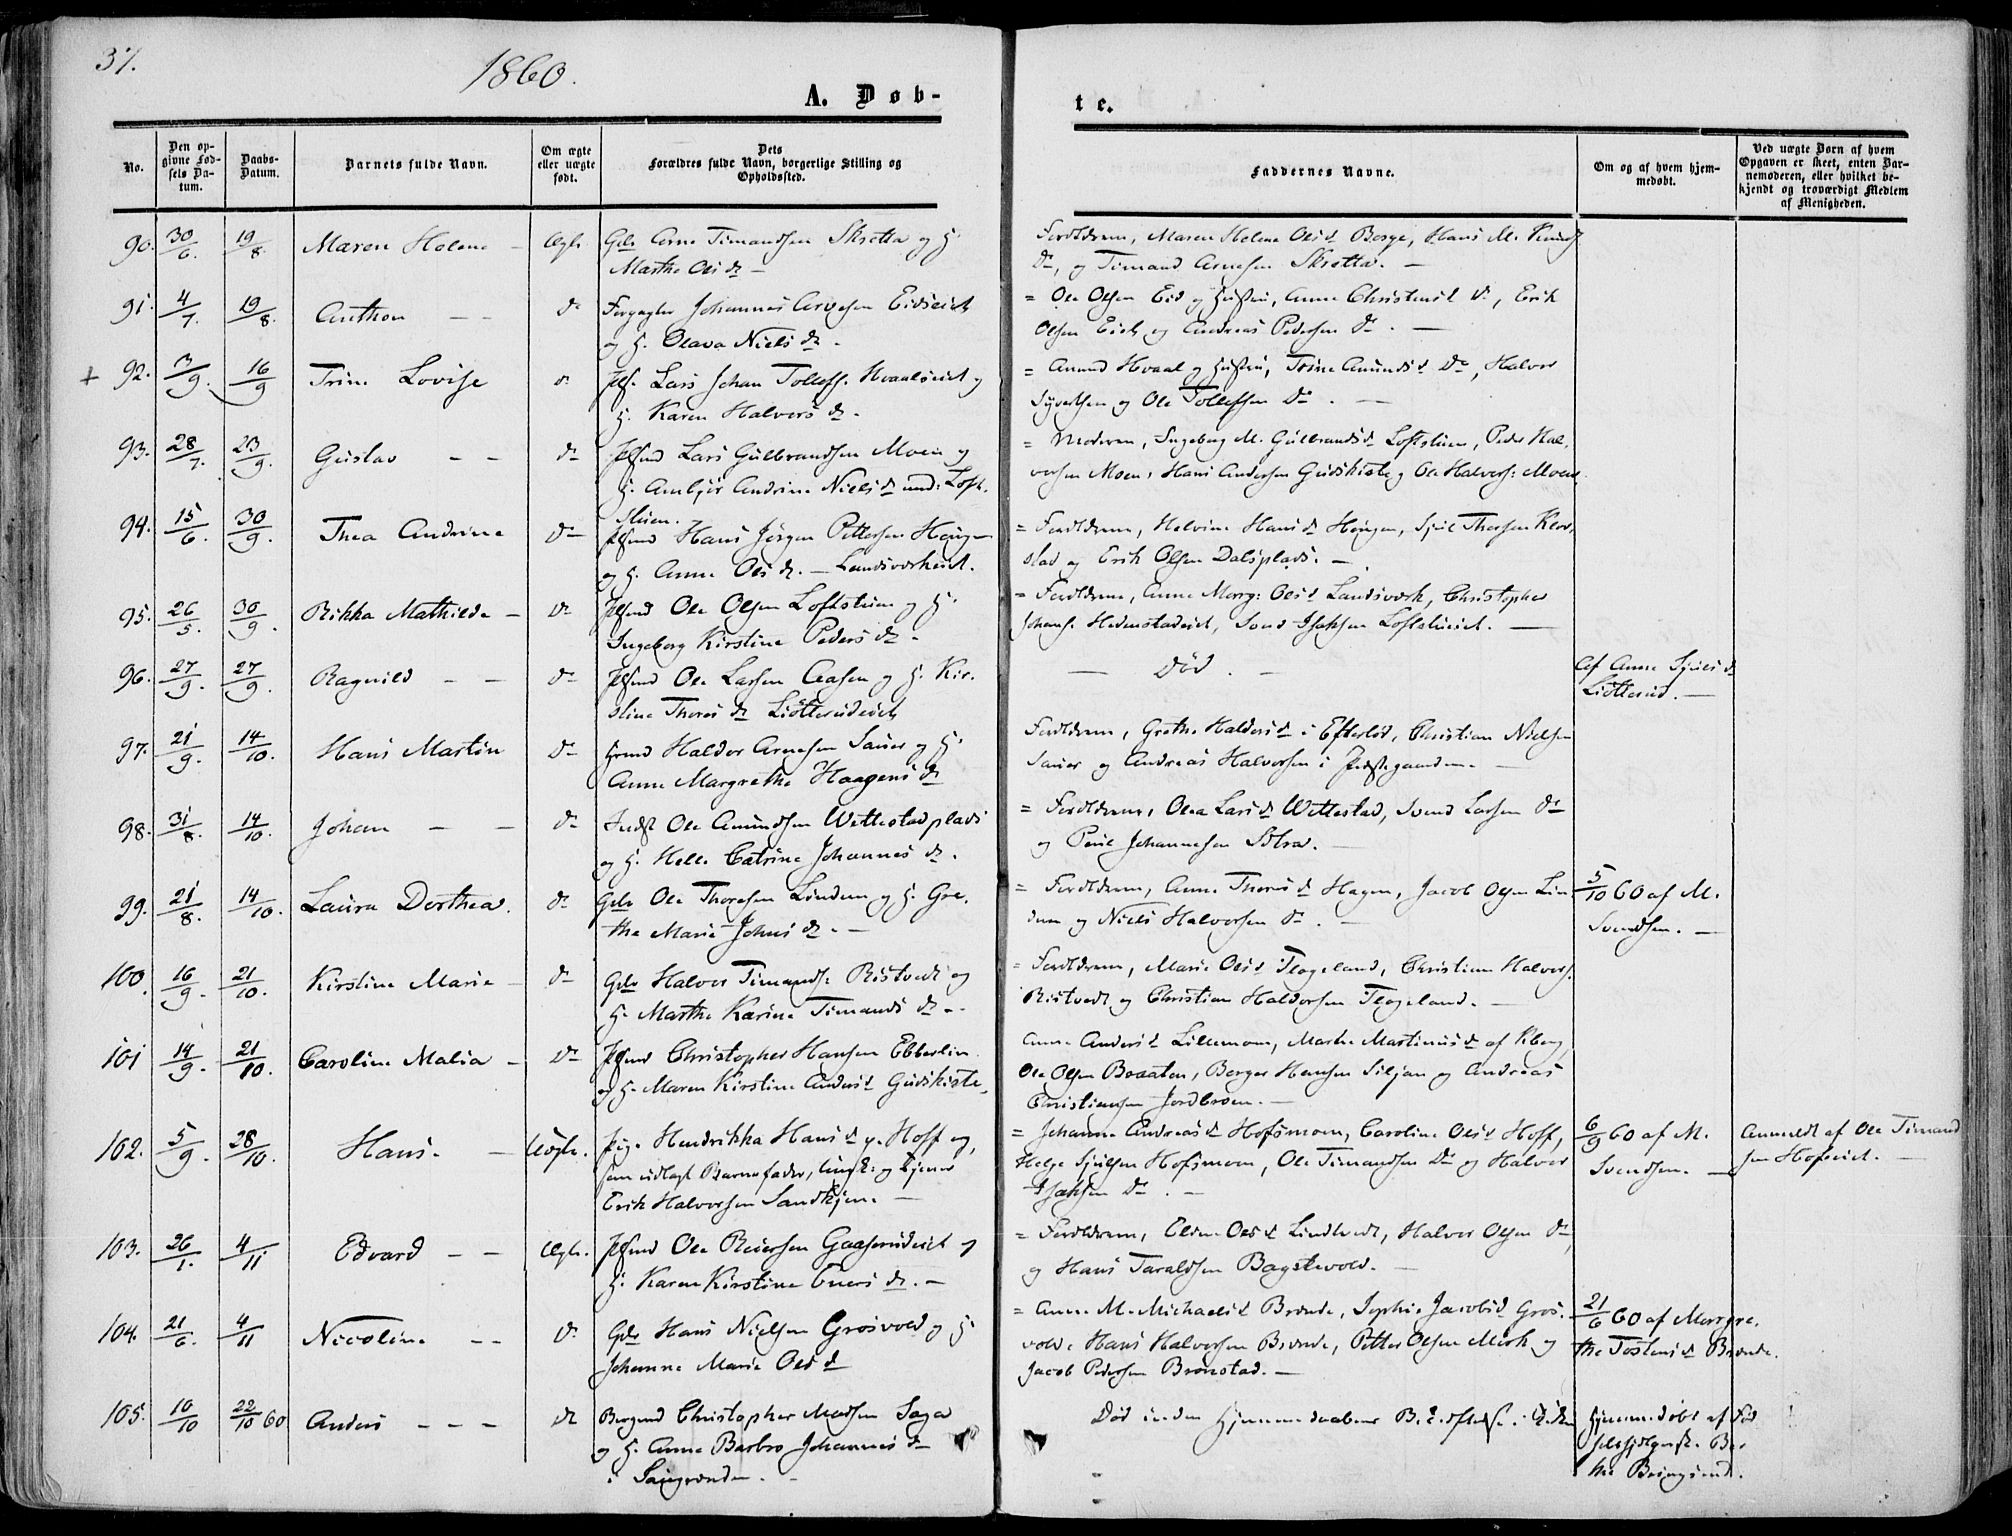 37.
1860.
A. Døb-
te.
No.
Den op-
givne Fød-
sels Da-
tum.
Daabs-
Datum.
Barnets fulde Navn.
Om ægte
eller uægte
født.
Dets
Forældres fulde Navn, borgerlige Stilling og
Opholdssted.
Faddernes Navne.
Om og af hvem hjem-
medøbt.
Ved uægte Børn af hvem
Opgaven er skeet, enten Bar-
nemoderen, eller hvilket be-
kjendt og troværdigt Medlem
af Menigheden.
90. 30/6. 19/8. Maren Helene - Ægte Arne Timandsen Skretta og H.
Marthe Olsdr -
Forældrene, Maren Helene Olsd Berge, Hans M.
Do, og Timand Arnesen Skretta. -
91. 4/7. 19/8. Anthon - - Do Johannes Arvesen Eidseiet
og H. Olava Nielsdr.
= Ole Olsen Eid og Hustru, Anne Christensd Do, Erik
Olsen Eid, og Andreas Pedersen Do. -
+ 92. 3/9. 16/9 Trine Lovise Do Lars Johan Tollefs. Hvaalseiet og
H. Karen Halvorsdr.
= Amund Hvaal og Hustru, Trine Amundsd Do, Halvor
Syvertsen og Ole Tollefsen Do. -
93. 28/7. 23/9. Gustav - - Do Lars Gulbrandsen Moen og
H. Andrine Nielsd und: Loft-
stuen.
= Moderen, Ingeborg M. Gulbrandsd Loftstuen, Peder Hal-
vorsen Moen, Hans Andersen Gudskiste og Ole Halvors: Moen
94. 15/6. 30/9. Thea Andrine Do Hans Jørgen Pettersen Haugen
og H. Anne Olsdr. - Landsverkeiet.
= Forældrene, Helvine Hansd Haugen, Sjul Thorsen Klev-
stad og Erik Olsen Dalsplads. -
95. 26/5. 30/9. Rikka Mathilde - Do Ole Olsen Loftstuen og H.
Ingeborg Kirstine Pedersdr.
= Forældrene, Anne Marg: Olsd Landsverk, Christopher
Johans. Hedenstadeiet, Svend Isaksen Loftstueiet. -
96. 27/9. 27/9. Ragnild - - Do Ole Larsen Aasen og H. Kir-
stine Thorsdr
- Død. -
Af Anne Sjulsd
97. 21/9. 14/10. Hans Martin Do Haldor Arnesen Sauer og H.
Anne Margrethe Haagensdr
Forældrene, Grethe Haldorsd i Efteløt, Christian Nielsen
Sauer og Andreas Halvorsen i Præstegaarden. -
98. 31/8. 14/10. Johan - - Do Inds Ole Amundsen Wettestadplads
og H. Helle Catrine Johannesdr.
= Forældrene, Olea Larsd Wettestad, Svend Larsen Do
og Poul Johannesen Sølva. -
99. 21/8. 14/10. Laura Dorthea. Do Ole Thoresen Lindem og H. Gre-
the Marie Johnsdr. -
= Forældrene, Anne Thorsd Hagen, Jacob Olsen Lin-
dem og Niels Halvorsen Do. -
5/10 60 af M.
Svendsen. -
100. 16/9. 21/10. Kirstine Marie - Do Halvor Timands. Ristvedt og
H. Marthe Karine Timandsdr.
= Forældrene, Marie Olsd Teigeland, Christian Halvors.
Ristvedt og Christian Haldorsen Teigeland. -
101 14/9. 21/10. Caroline Malia - Do Christopher Hansen Ebberlin
og H. Maren Kirstine Andersd Gudskiste.
Anne Andersd Lillemoen, Marthe Martinusd af Kberg,
Ole Olsen Braaten, Berger Hansen Siljan og Andreas
Christiansen Jordbroen. -
102. 5/9. 28/10. Hans. - Uægte. Pige Hendrikka Hansd p. Hoff og,
som udlagt Barnefader, Ungk: og Tjener
Erik Halvorsen Sandkjern. -
= Johanne Andreasd Hofsmoen, Caroline Olsd Hoff,
Helge Sjulsen Hofsmoen, Ole Timandsen Do og Halvor
Isaksen Do. -
6/9 60 af M.
Svendsen. -
Anmeldt af Ole Timand-
sen Hofseiet. -
103. 26/1. 4/11 Edvard - - Ægte. Ole Reiersen Gaaserudeiet og
H. Karen Kirstine Enersdr. -
= Forældrene, Eline Olsd Lindtvedt, Halvor Olsen Do,
og Hans Taraldsen Bagstevold. -
104. 21/6. 4/11 Nicoline - - Do Hans Nielsen Grosvold og H.
Johanne Marie Olsd
= Anne M. Michaelsd Brønde, Sophie Jacobsd Gros-
vold, Hans Halvorsen Brønde, Petter Olsen Mørk og
Jacob Pedersen Brønstad. -
21/6 60 af Margre-
the Tostensd Brønde.
105. 10/10 22/10 60 Anders - - - Do Bergmd Christopher Madsen Saga
og H. Anne Barbro Johannesdr
i Saugrenden. -
Død inden Hjemmedaabens
Hjemmedøbt af Fød-
selshjelpersk. Ber-
the